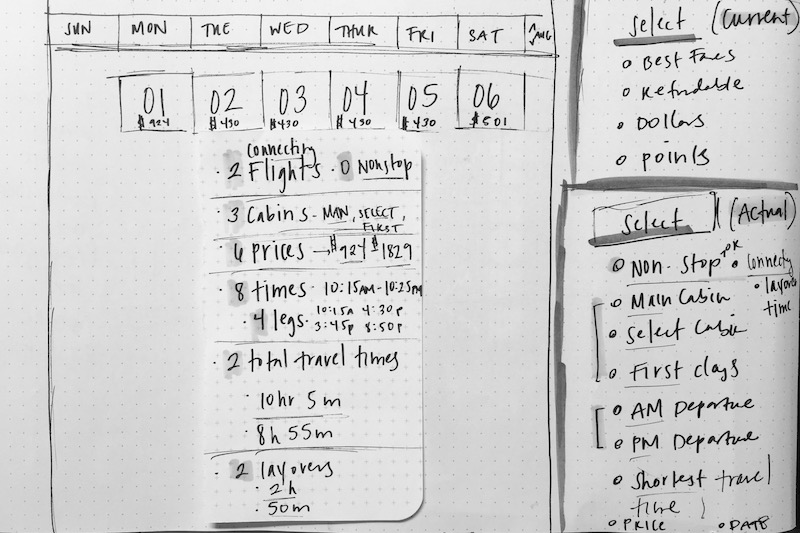 SUN MON TUE WED THUR FRI SAT AUG
01 02 03 04 05 06
$924 $430 $430 $430 $430 $501
Connecting
· 2 Flights · 0 Nonstop
· 3 Cabins - MAIN, SELECT,
FIRST
6 prices → $924 $1829
· 8 times · 10:15AM-10:25PM
· 4 legs · 10:15A 4:30P
3:45P 8:50P
· 2 total travel times
· 10hr 5m
· 8h 55m
· 2 layovers
· 2h
· 50m
Select (Current)
o Best Fares
o Refundable
o Dollars
o points
Select (Actual)
o Non-Stop + OR o Connecty
o layover
time
o Main Cabin
o Select Cabin
o First Class
o AM Departure
o PM Departure
o Shortest travel
time
o PRICE o DATE